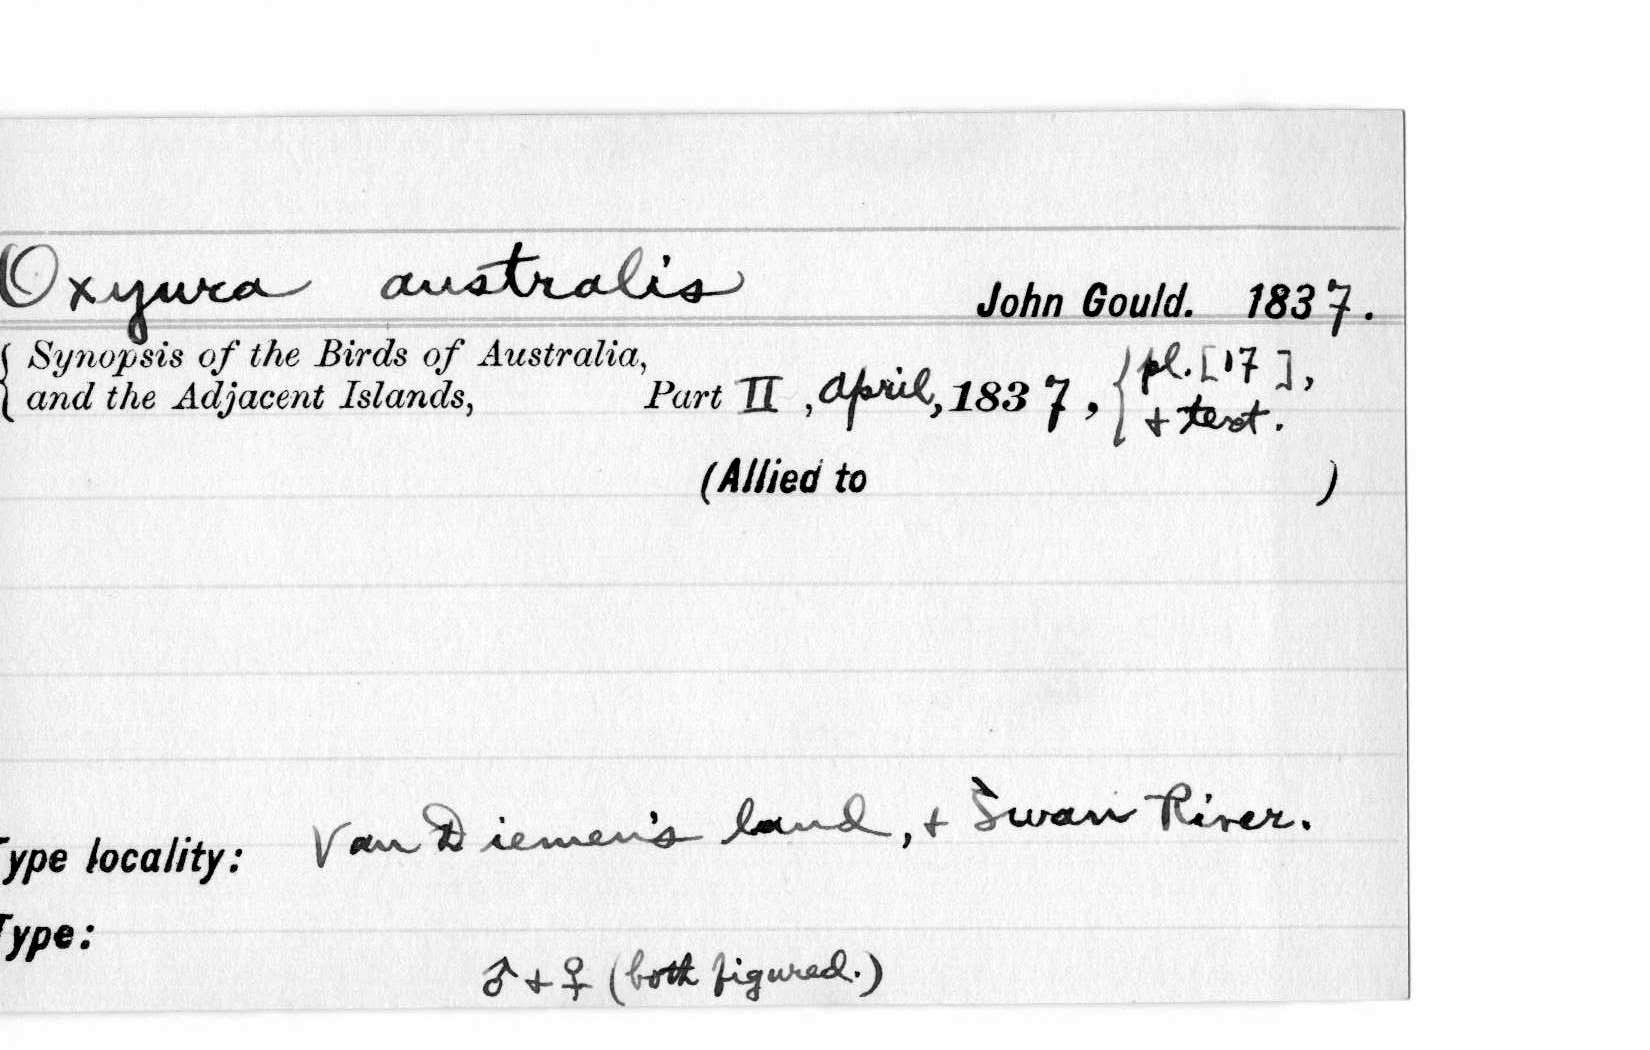 Oxyura australis John Gould. 1837.
{ Synopsis of the Birds of Australia, and the Adjacent Islands, Part II, April, 1837, { pl. [17], + text.
(Allied to )
Type locality: Van Diemen's land, + Swan River.
Type:
♂ + ♀ (both figured.)